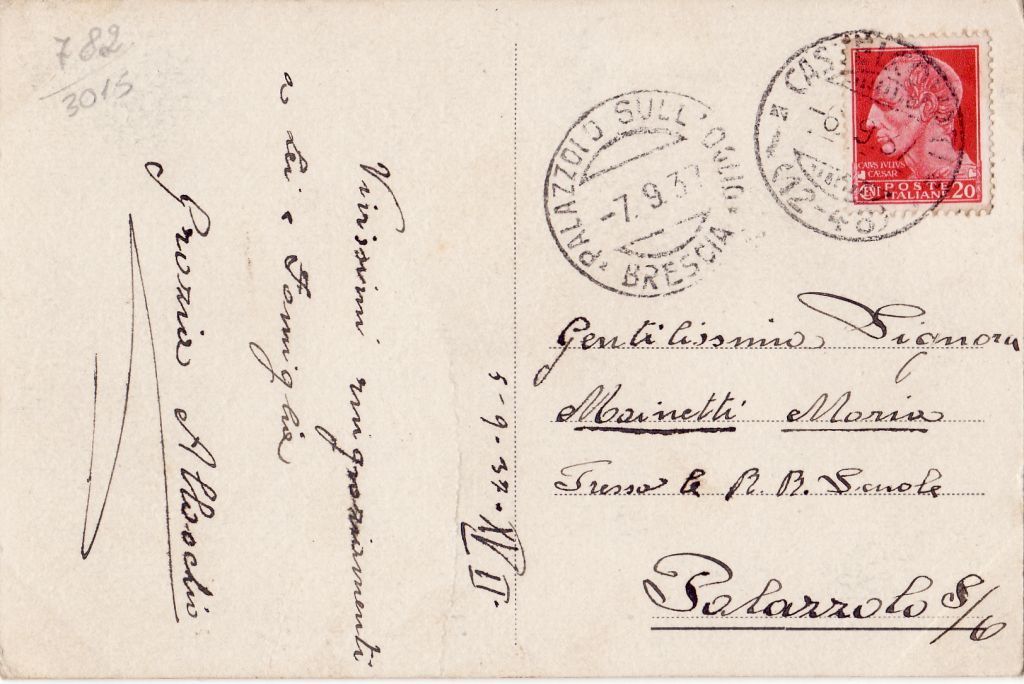 782
3015
Vivissimi ringraziamenti
a Lei e Famiglia
Grazia
5-9-37-XV
PALAZZOLO SULL'OGLIO
-7.9.37
* BRESCIA *
CAIVS IVLIVS
CÆSAR
CENT. 20
POSTE
ITALIANE
(12-48)
Gentilissima Signora
Mainetti Maria
Presso le R. R. Scuole
Palazzolo S/O